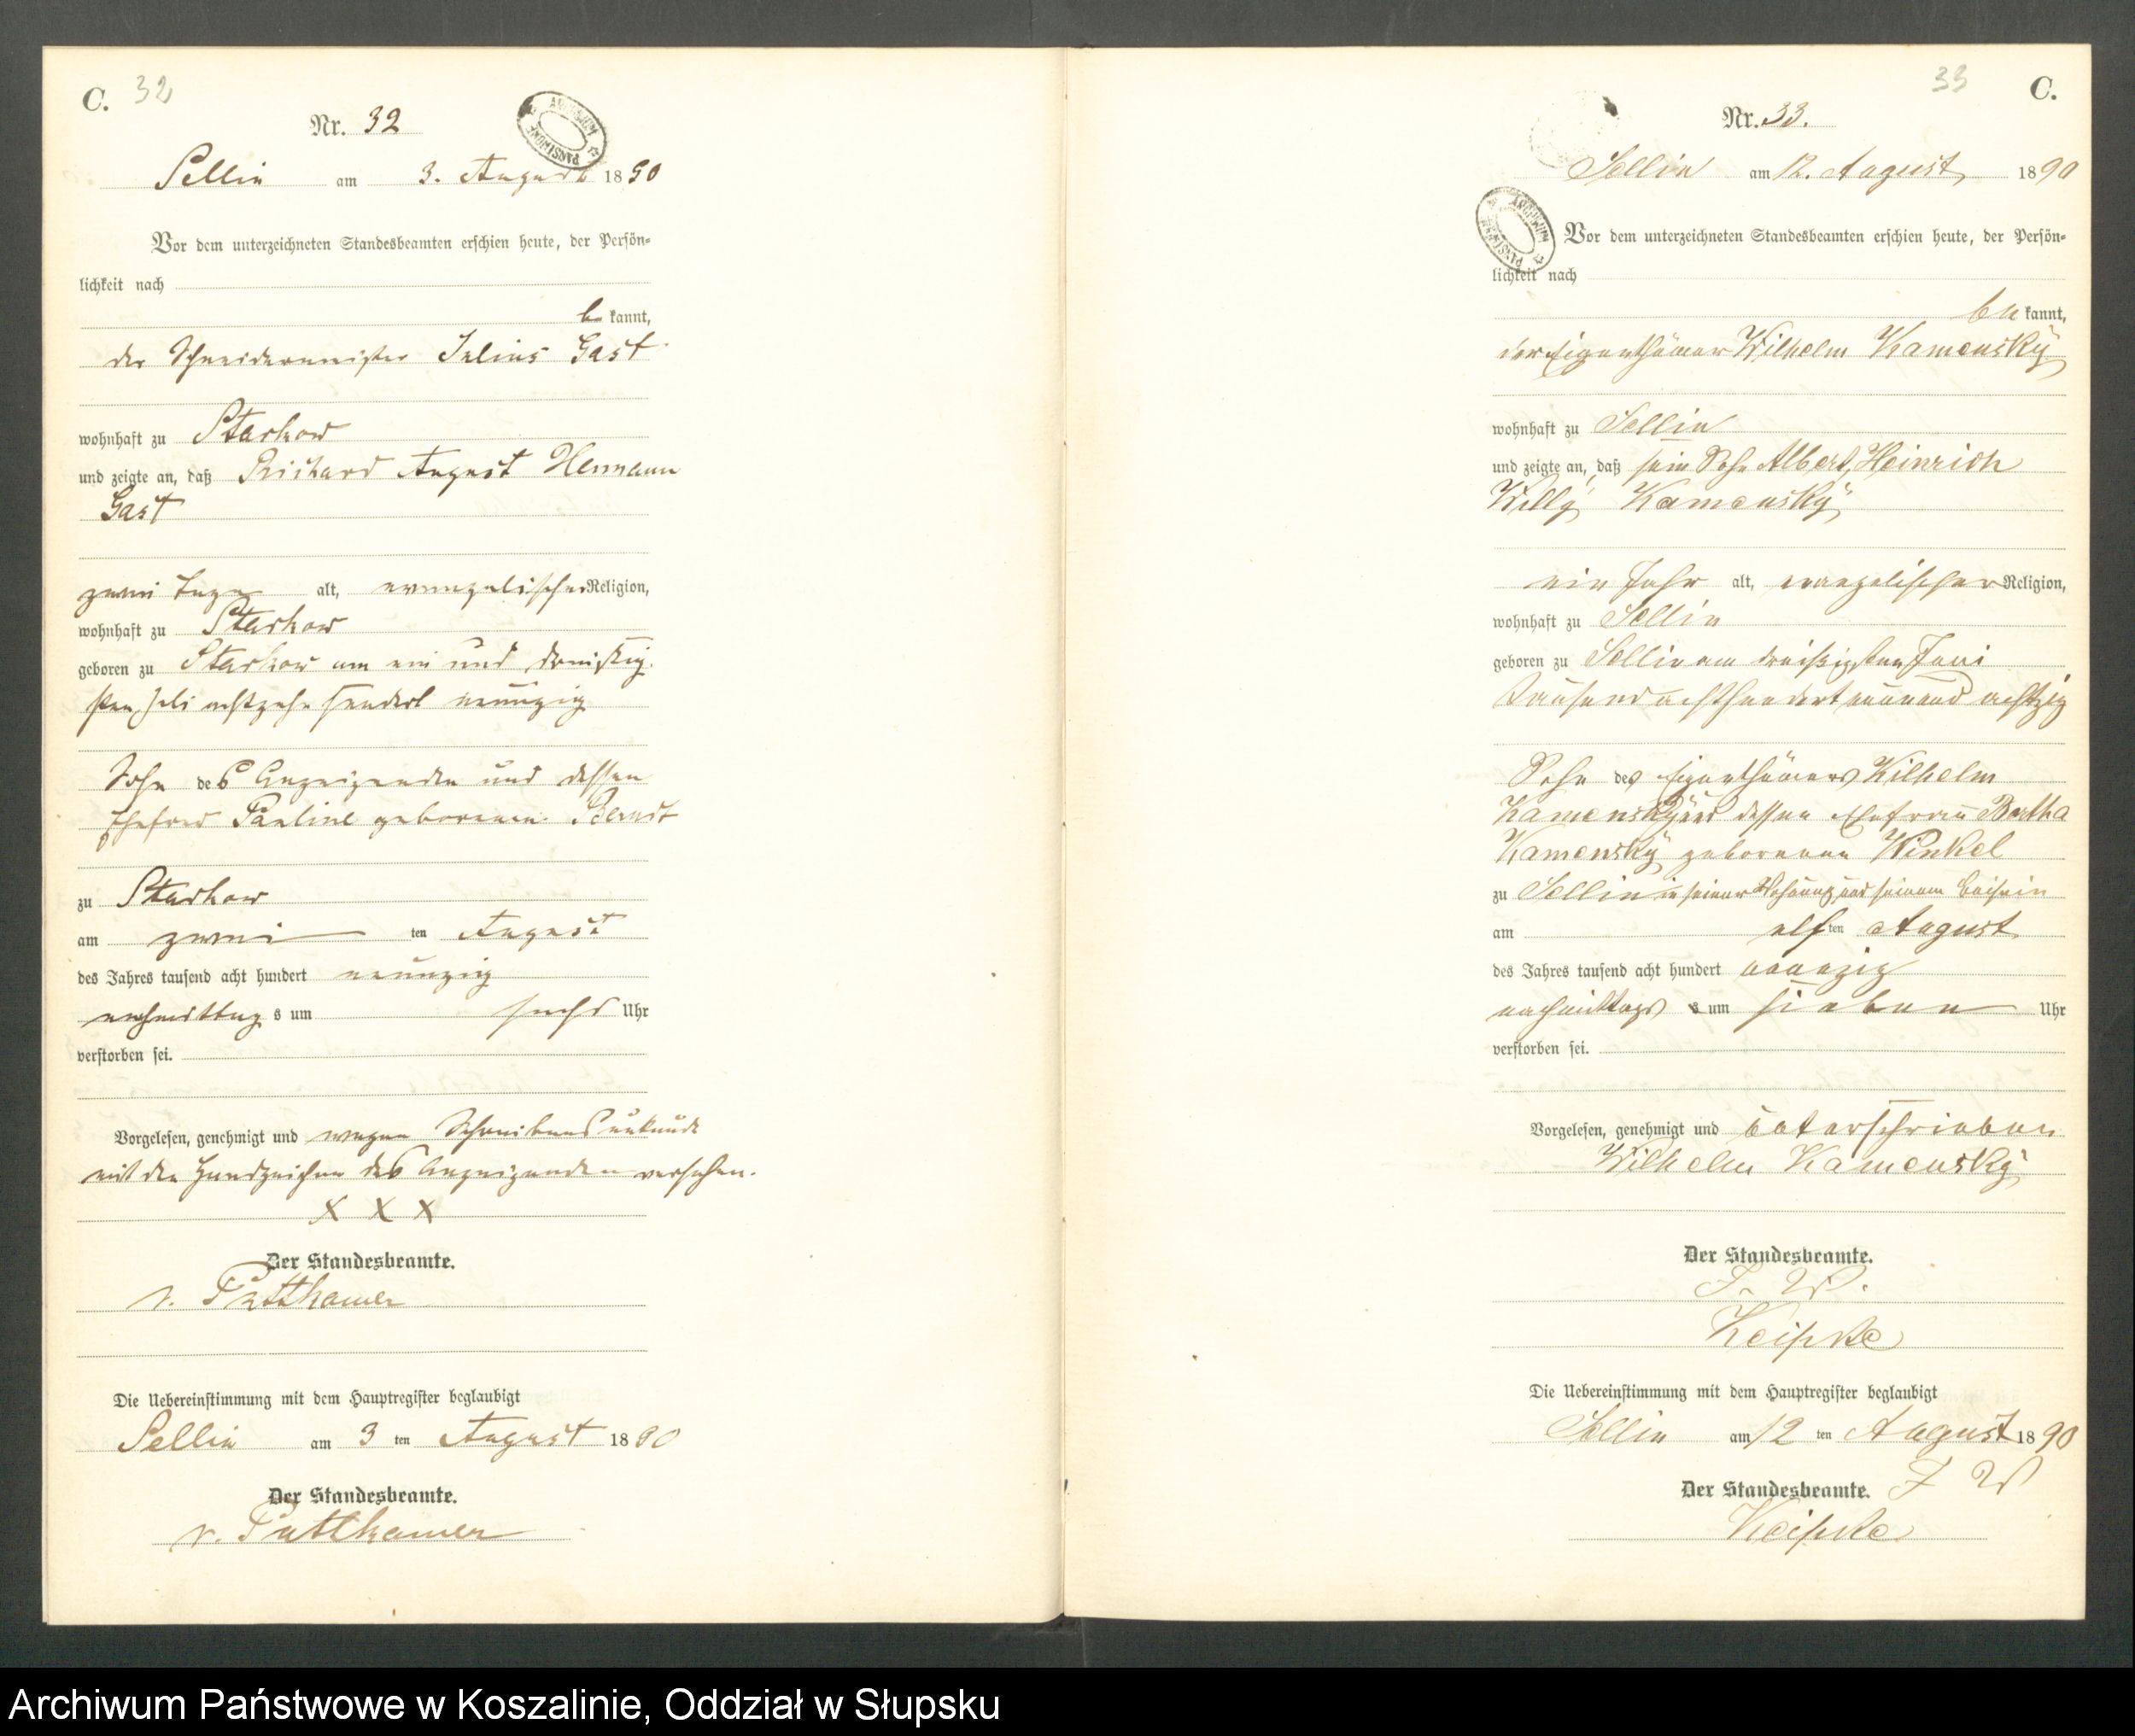 C. 32
Nr. 32
ARCHIWUM PAŃSTWOWE
Sellin am 3. August 1890
Vor dem unterzeichneten Standesbeamten erschien heute, der Persön-
lichkeit nach
be kannt,
der Schneidermeister Julius Gast
wohnhaft zu Starkow
und zeigte an, daß Richard August Hermann
Gast
zwei Tage alt, evangelischer Religion,
wohnhaft zu Starkow
geboren zu Starkow am ein und dreißig-
sten Juli achtzehn hundert neunzig
Sohn des Anzeigenden und dessen
Ehefrau Pauline geborenen Berndt
zu Starkow
am zwei ten August
des Jahres tausend acht hundert neunzig
nachmittag s um sechs Uhr
verstorben sei.
Vorgelesen, genehmigt und wegen Schreibensunkunde
mit den Handzeichen des Anzeigenden versehen.
X X X
Der Standesbeamte.
v. Puttkamer
Die Uebereinstimmung mit dem Hauptregister beglaubigt
Sellin am 3 ten August 1890
Der Standesbeamte.
v. Puttkamer
33 C.
Nr. 33.
Sellin am 12. August 1890
ARCHIWUM PAŃSTWOWE
Vor dem unterzeichneten Standesbeamten erschien heute, der Persön-
lichkeit nach
be kannt,
der Eigenthümer Wilhelm Kamensky
wohnhaft zu Sellin
und zeigte an, daß sein Sohn Albert, Heinrich
Willy Kamensky
ein Jahr alt, evangelischer Religion,
wohnhaft zu Sellin
geboren zu Sellin am dreißigsten Juni
tausend achthundert neunund achtzig
Sohn des Eigenthümers Wilhelm
Kamensky und dessen Ehefrau Bertha
Kamensky geborenen Winkel
zu Sellin in seiner Wohnung und seinem Beisein
am elf ten August
des Jahres tausend acht hundert neunzig
nachmittags s um sieben Uhr
verstorben sei.
Vorgelesen, genehmigt und unterschrieben
Wilhelm Kamensky
Der Standesbeamte.
J. V.
Die Uebereinstimmung mit dem Hauptregister beglaubigt
Sellin am 12 ten August 1890
Der Standesbeamte. J V
Archiwum Państwowe w Koszalinie, Oddział w Słupsku